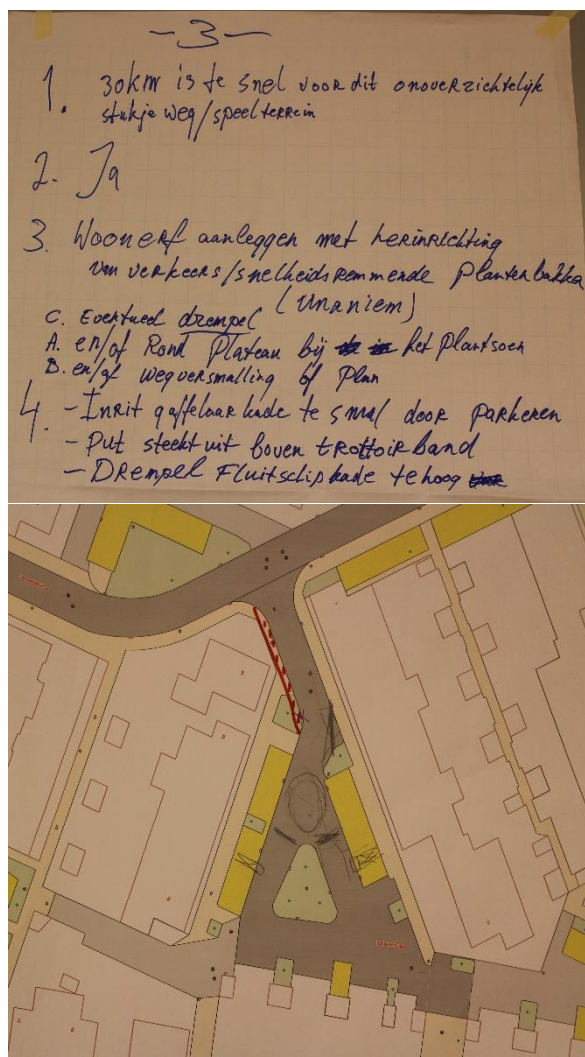 -3-
1. 30km is te snel voor dit onoverzichtelijk
stukje weg/speelterrein
2. Ja
3. Woonerf aanleggen met herinrichting
van verkeers/snelheidsremmende plantenbakke
(unaniem)
C. Eventueel drempel
A. en/of Rond Plateau bij het plantsoen
B. en/of wegversmalling of Plan
4. - Inrit gaffelaarkade te smal door parkeren
- Put steekt uit boven trottoirband
- Drempel Fluitschipkade te hoog